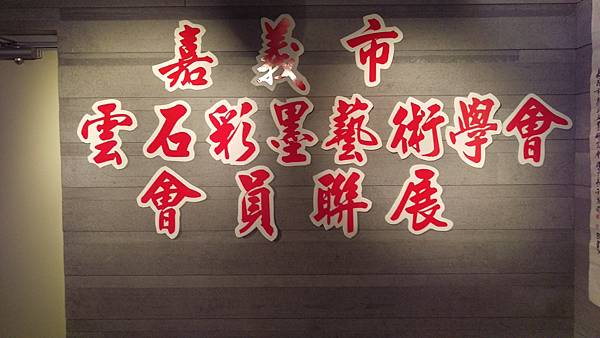 嘉義市
雲石彩墨藝術學會
會員聯展